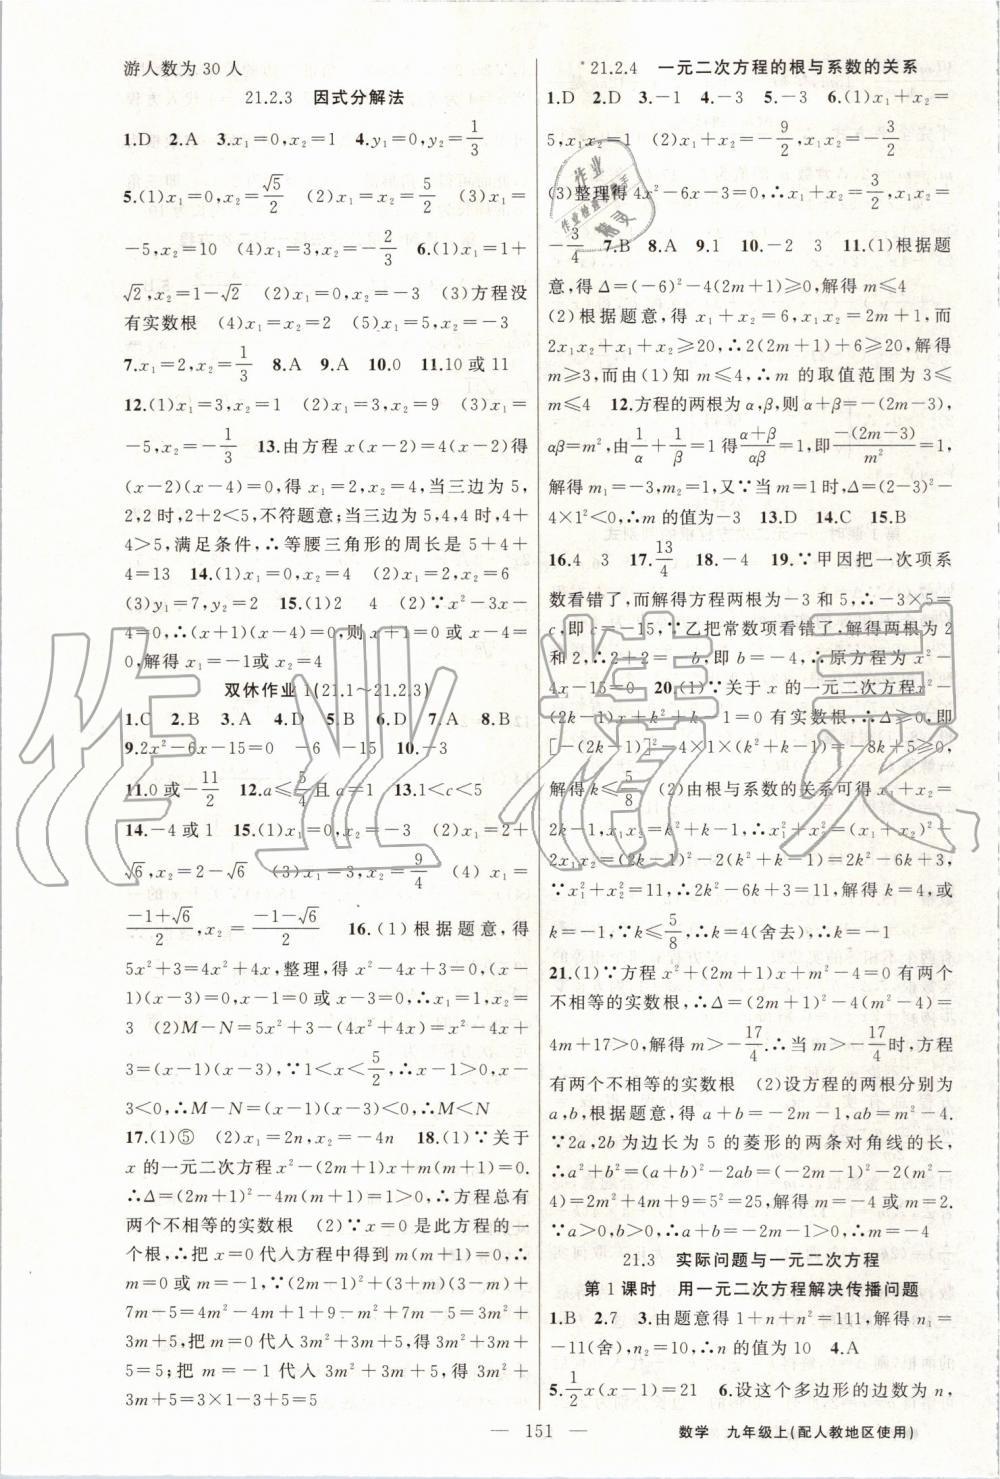 游人数为30人
21.2.3 因式分解法
1.D 2.A 3.x₁=0,x₂=1 4.y₁=0,y₂=1/3
5.(1)x₁=0,x₂=√5/2 (2)x₁=x₂=5/2 (3)x₁=
-5,x₂=10 (4)x₁=3,x₂=-2/3 6.(1)x₁=1+
√2,x₂=1-√2 (2)x₁=0,x₂=-3 (3)方程没
有实数根 (4)x₁=x₂=2 (5)x₁=5,x₂=-3
7.x₁=2,x₂=1/3 8.A 9.A 10.0 11.10或11
12.(1)x₁=3,x₂=1 (2)x₁=3,x₂=9 (3)x₁=
-5,x₂=-1/3 13.由方程x(x-2)=4(x-2)得
(x-2)(x-4)=0,得x₁=2,x₂=4,当三边为5,
2,2时,2+2<5,不符题意;当三边为5,4,4时,4+
4>5,满足条件,∴等腰三角形的周长是5+4+
4=13 14.(1)x₁=0,x₂=4 (2)x₁=x₂=6
(3)y₁=7,y₂=2 15.(1)2 4 (2)∵x²-3x-
4=0,∴(x+1)(x-4)=0,则x+1=0或x-4=
0,解得x₁=-1或x₂=4
双休作业1(21.1~21.2.3)
1.C 2.B 3.A 4.D 5.B 6.D 7.A 8.B
9.2x²-6x-15=0 -6 -15 10.-3
11.0或-11/2 12.a≤5/4且a≠1 13.1<c<5
14.-4或1 15.(1)x₁=0,x₂=-3 (2)x₁=2+
√6,x₂=2-√6 (3)x₁=3,x₂=9/4 (4)x₁=
(-1+√6)/2,x₂=(-1-√6)/2 16.(1)根据题意,得
5x²+3=4x²+4x,整理,得x²-4x+3=0,(x-
1)(x-3)=0,x-1=0或x-3=0,∴x₁=1,x₂=
3 (2)M-N=5x²+3-(4x²+4x)=x²-4x+
3=(x-1)(x-3),∵1<x<5/2,∴x-1>0,x-
3<0,∴M-N=(x-1)(x-3)<0,∴M<N
17.(1)⑤ (2)x₁=2n,x₂=-4n 18.(1)∵关于
x的一元二次方程x²-(2m+1)x+m(m+1)=0.
∴Δ=(2m+1)²-4m(m+1)=1>0,∴方程总有
两个不相等的实数根 (2)∵x=0是此方程的一
个根,∴把x=0代入方程中得到m(m+1)=0,∴
m=0或m=-1,∵(2m-1)²+(3+m)(3-m)+
7m-5=4m²-4m+1+9-m²+7m-5=3m²+
3m+5,把m=0代入3m²+3m+5,得3m²+3m+
5=5;把m=-1代入3m²+3m+5,得3m²+
3m+5=3×1-3+5=5
21.2.4 一元二次方程的根与系数的关系
1.D 2.D 3.-1 4.-3 5.-3 6.(1)x₁+x₂=
5,x₁x₂=1 (2)x₁+x₂=-9/2,x₁x₂=-3/2
(3)整理得4x²-6x-3=0,∴x₁+x₂=3/2,x₁x₂=
-3/4 7.B 8.A 9.1 10.-2 3 11.(1)根据题
意,得Δ=(-6)²-4(2m+1)≥0,解得m≤4
(2)根据题意,得x₁+x₂=6,x₁x₂=2m+1,而
2x₁x₂+x₁+x₂≥20,∴2(2m+1)+6≥20,解得
m≥3,而由(1)知m≤4,∴m的取值范围为3≤
m≤4 12.方程的两根为α,β,则α+β=-(2m-3),
αβ=m²,由1/α+1/β=1得(α+β)/αβ=1,即-(2m-3)/m²=1,
解得m₁=-3,m₂=1,又∵当m=1时,Δ=(2-3)²-
4×1²<0,∴m的值为-3 13.D 14.C 15.B
16.4 3 17.13/4 18.-4 19.∵甲因把一次项系
数看错了,而解得方程两根为-3和5,∴-3×5=
c,即c=-15,∵乙把常数项看错了,解得两根为2
和2,∴2+2=-b,即b=-4,∴原方程为x²-
4x-15=0 20.(1)∵关于x的一元二次方程x²-
(2k-1)x+k²+k-1=0有实数根,∴Δ≥0,即
[-(2k-1)]²-4×1×(k²+k-1)=-8k+5≥0,
解得k≤5/8 (2)由根与系数的关系可得x₁+x₂=
2k-1,x₁x₂=k²+k-1,∴x₁²+x₂²=(x₁+x₂)²-
2x₁x₂=(2k-1)²-2(k²+k-1)=2k²-6k+3,
∵x₁²+x₂²=11,∴2k²-6k+3=11,解得k=4,或
k=-1,∵k≤5/8,∴k=4(舍去),∴k=-1
21.(1)∵方程x²+(2m+1)x+m²-4=0有两个
不相等的实数根,∴Δ=(2m+1)²-4(m²-4)=
4m+17>0,解得m>-17/4.∴当m>-17/4时,方程
有两个不相等的实数根 (2)设方程的两根分别为
a,b,根据题意,得a+b=-2m-1,ab=m²-4.
∵2a,2b为边长为5的菱形的两条对角线的长,
∴a²+b²=(a+b)²-2ab=(-2m-1)²-2(m²-
4)=2m²+4m+9=5²=25,解得m=-4或m=2.
∵a>0,b>0,∴a+b=-2m-1>0,∴m=-4
21.3 实际问题与一元二次方程
第1课时 用一元二次方程解决传播问题
1.B 2.7 3.由题意得1+n+n²=111,解得n₁=
-11(舍),n₂=10,∴n的值为10 4.A
5.1/2x(x-1)=21 6.设这个多边形的边数为n,
— 151 —
数学 九年级上(配人教地区使用)
作业精灵
作业
作业检查小助手
精灵